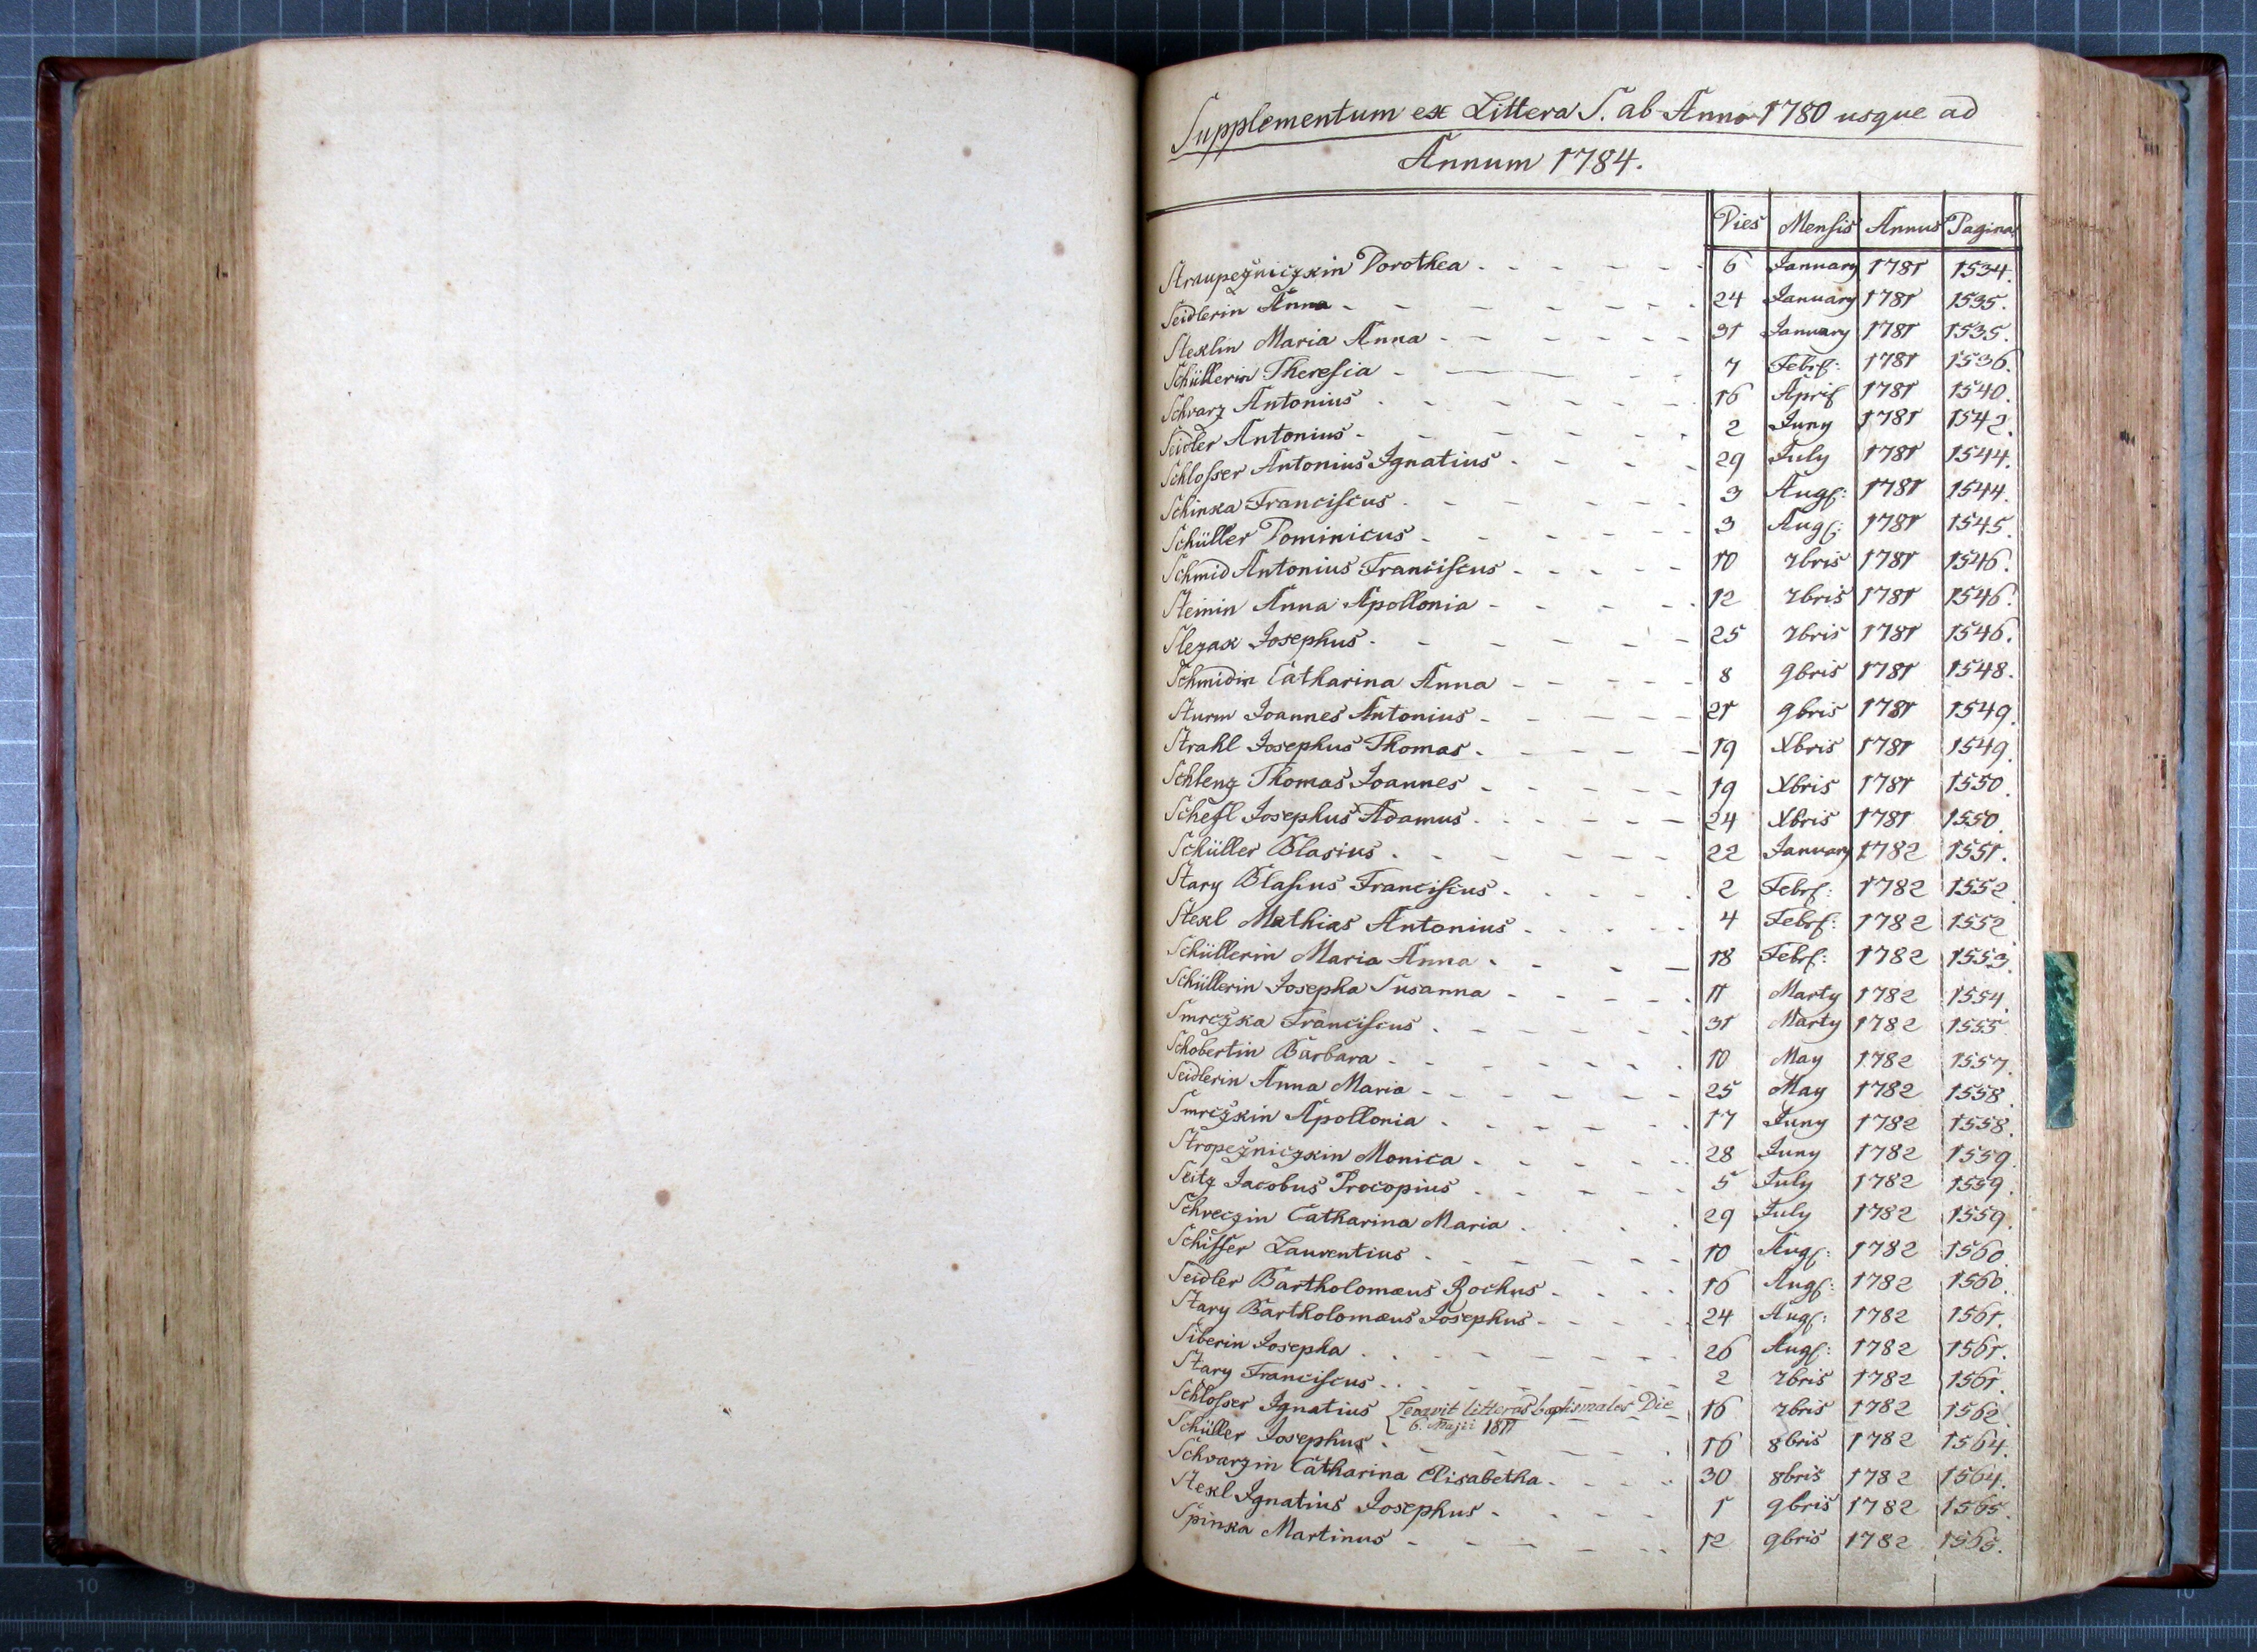 Supplementum ex Littera S. ab Anno 1780 usque ad
Annum 1784.
Dies Mensis Annus Pagina
Straupežniczkin Dorothea 6 January 1781 1534.
Seidlerin Anna 24 January 1781 1535.
Steklin Maria Anna 31 January 1781 1535.
Schüllerin Theresia 7 Febr: 1781 1536.
Schwarz Antonius 16 April 1781 1540.
Seidler Antonius 2 Juny 1781 1542.
Schlosser Antonius Ignatius 29 July 1781 1544.
Schinka Franciscus 3 Aug: 1781 1544.
Schüller Dominicus 3 Aug: 1781 1545.
Schmid Antonius Franciscus 10 7bris 1781 1546.
Steinin Anna Apollonia 12 7bris 1781 1546.
Slezak Josephus 25 7bris 1781 1546.
Schmidin Catharina Anna 8 9bris 1781 1548.
Sturm Joannes Antonius 21 9bris 1781 1549.
Strahl Josephus Thomas 19 Xbris 1781 1549.
Schlenz Thomas Joannes 19 Xbris 1781 1550.
Schefl Josephus Adamus 24 Xbris 1781 1550.
Schüller Blasius 22 January 1782 1551.
Stary Blasius Franciscus 2 Febr: 1782 1552.
Stekl Mathias Antonius 4 Febr: 1782 1552
Schüllerin Maria Anna 18 Febr: 1782 1553.
Schüllerin Josepha Susanna 11 Marty 1782 1554.
Smrczka Franciscus 31 Marty 1782 1555
Schobertin Barbara 10 May 1782 1557.
Seidlerin Anna Maria 25 May 1782 1558.
Smrczkin Apollonia 17 Juny 1782 1558.
Stropežniczkin Monica 28 Juny 1782 1559.
Seitz Jacobus Procopius 5 July 1782 1559.
Schreczin Catharina Maria 29 July 1782 1559.
Schisser Laurentius 10 Aug: 1782 1560.
Seidler Bartholomæus Rochus 16 Aug: 1782 1560.
Stary Bartholomæus Josephus 24 Aug: 1782 1561.
Siberin Josepha 26 Aug: 1782 1561.
Stary Franciscus 2 7bris 1782 1561.
Schlosser Ignatius { Levavit litteras baptismales Die 16 7bris 1782 1562.
6. Majii 1811
Schüller Josephus 16 8bris 1782 1564.
Schwarzin Catharina Elisabetha 30 8bris 1782 1564.
Stekl Ignatius Josephus 1 9bris 1782 1565.
Spinka Martinus 12 9bris 1782 1565.